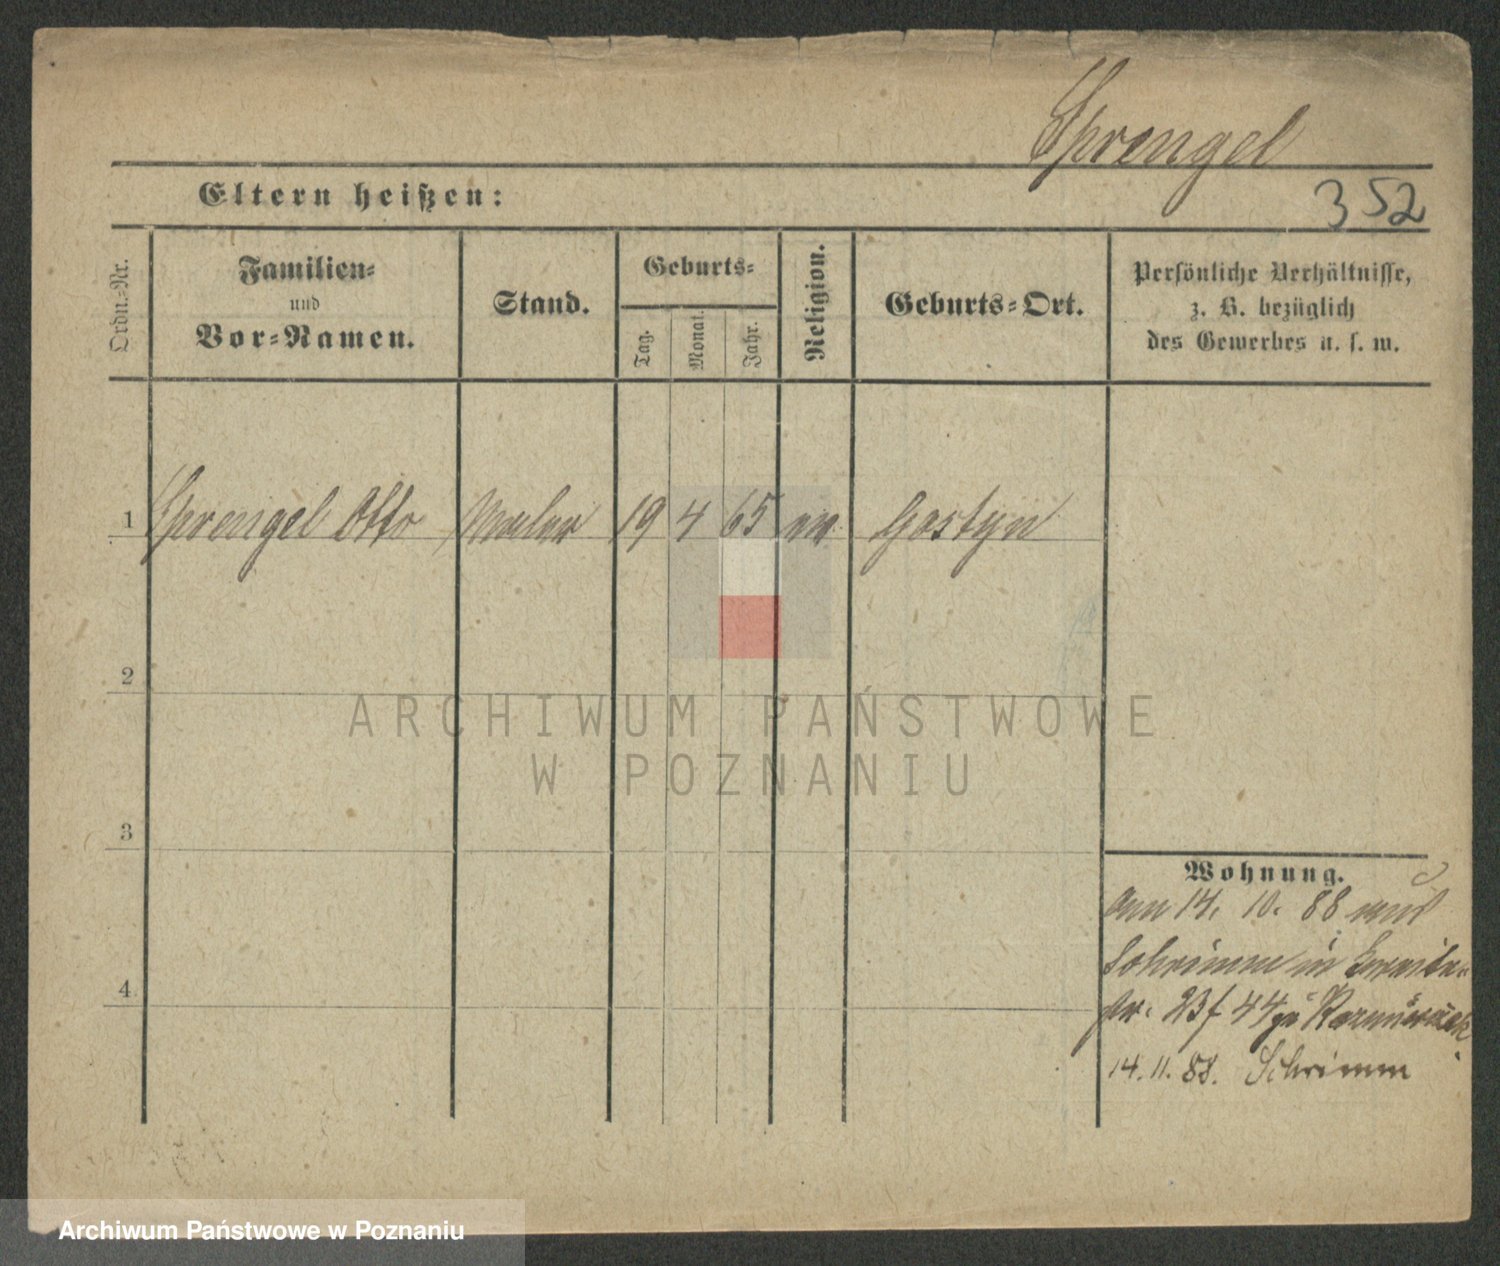 Sprengel
Eltern heißen:
352
Ordn.-Nr.
Familien-
und
Vor-Namen.
Stand.
Geburts-
Tag.
Monat.
Jahr.
Religion.
Geburts-Ort.
Persönliche Verhältnisse,
z. B. bezüglich
des Gewerbes u. s. w.
1 Sprengel Otto Maler 19 4 65 ev Gostyn
2
3
4
ARCHIWUM PAŃSTWOWE
W POZNANIU
Wohnung.
14. 10. 88 aus
Schrimm in Breite-
str. 23 44
14. 11. 88. Schrimm
Archiwum Państwowe w Poznaniu